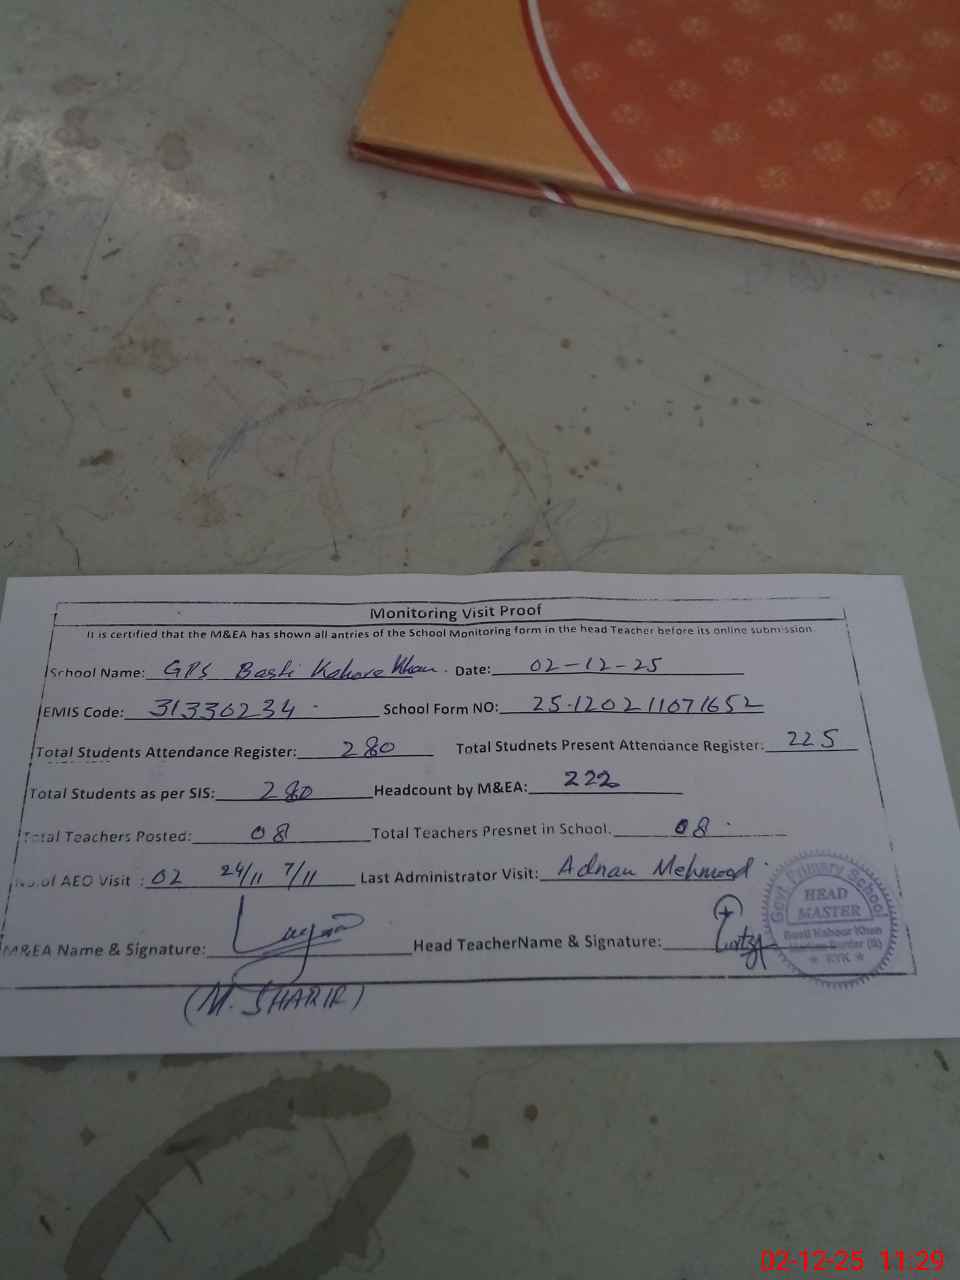 Monitoring Visit Proof
It is certified that the M&EA has shown all antries of the School Monitoring form in the head Teacher before its online submission
School Name: GPS Basti Kahore Khan. Date: 02-12-25
EMIS Code: 31330234 School Form NO: 25.120211071652
Total Students Attendance Register: 280 Total Studnets Present Attendance Register: 225
Total Students as per SIS: 280 Headcount by M&EA: 222
Total Teachers Posted: 08 Total Teachers Presnet in School. 08
No.of AEO Visit : 02 24/11 7/11 Last Administrator Visit: Adnan Mehmood
M&EA Name & Signature: Head TeacherName & Signature:
(M. SHARIF)
Govt Primary School
HEAD
MASTER
Basti Kahoor Khan
RYK
02-12-25 11:29